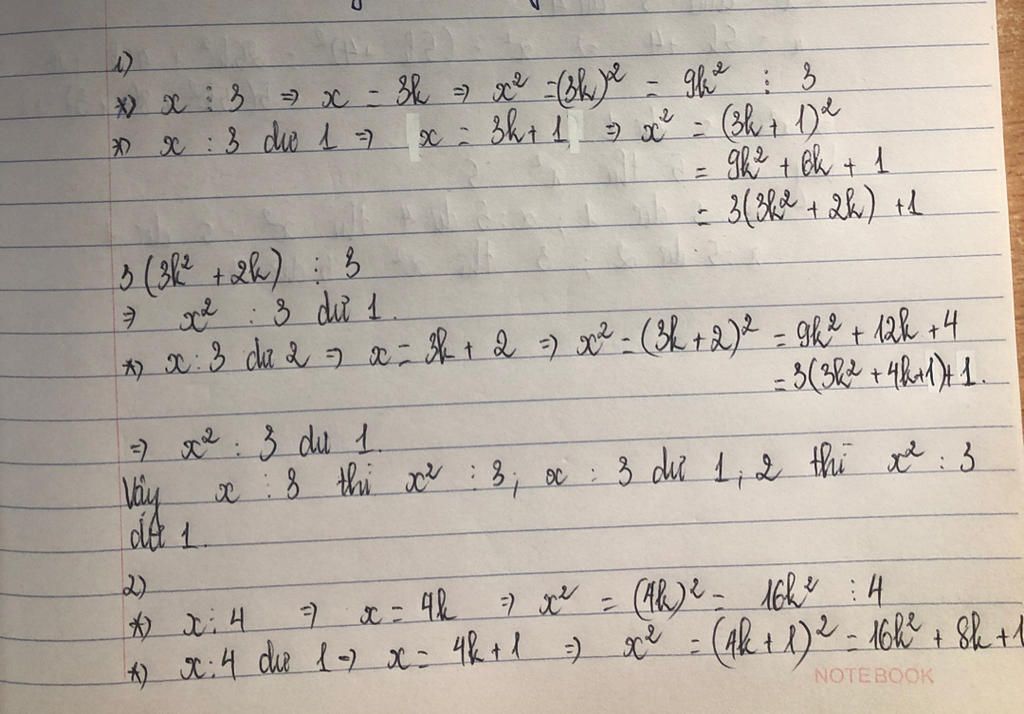 1)
*) x ⋮ 3 ⇒ x = 3k ⇒ x² = (3k)² = 9k² ⋮ 3
*) x : 3 dư 1 ⇒ x = 3k + 1 ⇒ x² = (3k + 1)²
= 9k² + 6k + 1
= 3(3k² + 2k) + 1
3(3k² + 2k) ⋮ 3
⇒ x² : 3 dư 1.
*) x : 3 dư 2 ⇒ x = 3k + 2 ⇒ x² = (3k + 2)² = 9k² + 12k + 4
= 3(3k² + 4k + 1) + 1.
⇒ x² : 3 dư 1.
Vậy x ⋮ 3 thì x² ⋮ 3; x : 3 dư 1, 2 thì x² : 3
dư 1.
2)
*) x ⋮ 4 ⇒ x = 4k ⇒ x² = (4k)² = 16k² ⋮ 4
*) x : 4 dư 1 ⇒ x = 4k + 1 ⇒ x² = (4k + 1)² = 16k² + 8k + 1
NOTEBOOK